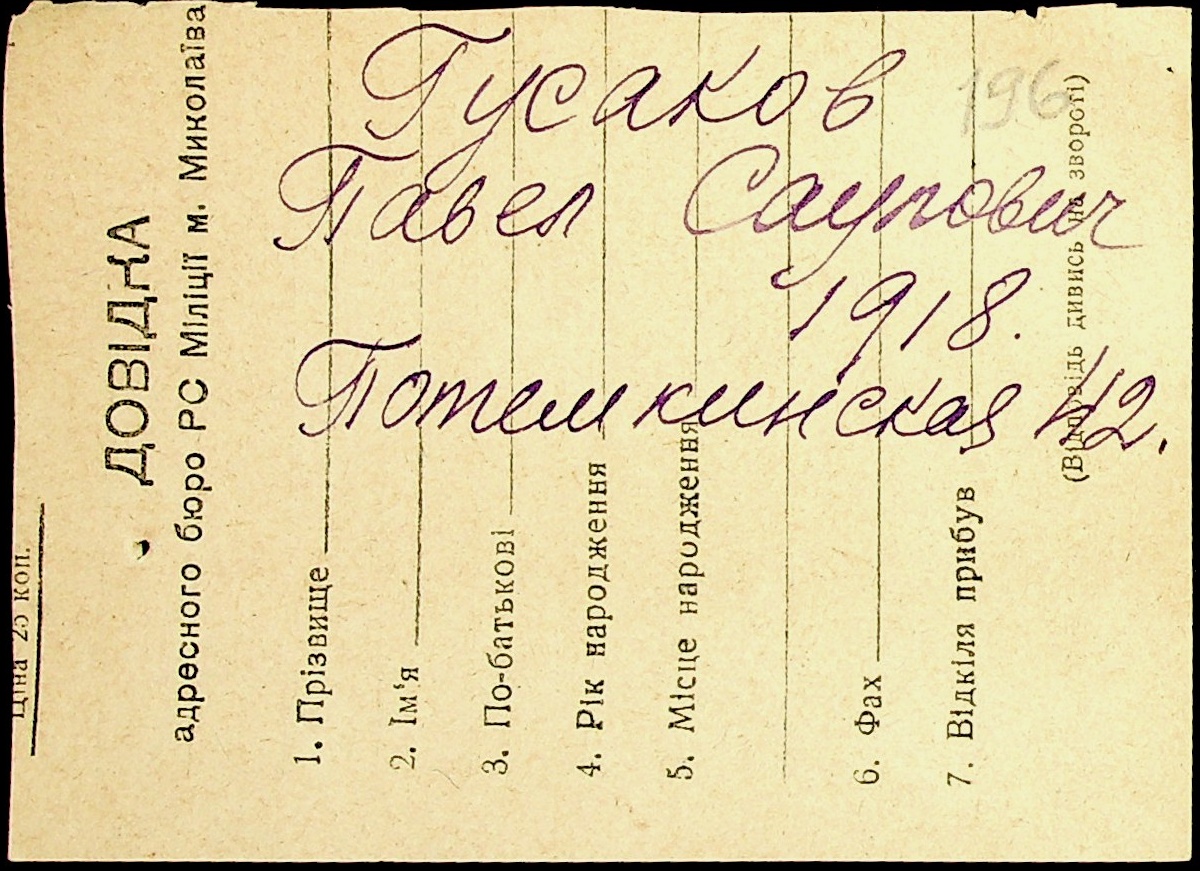 Ціна 25 коп.
ДОВІДКА
адресного бюро РС Міліції м. Миколаїва
1. Прізвище
2. Ім'я
3. По-батькові
4. Рік народження
5. Місце народження
6. Фах
7. Відкіля прибув
(Відповідь дивись на звороті)
Гусаков
196
Павел
1918.
Потемкинская 42.